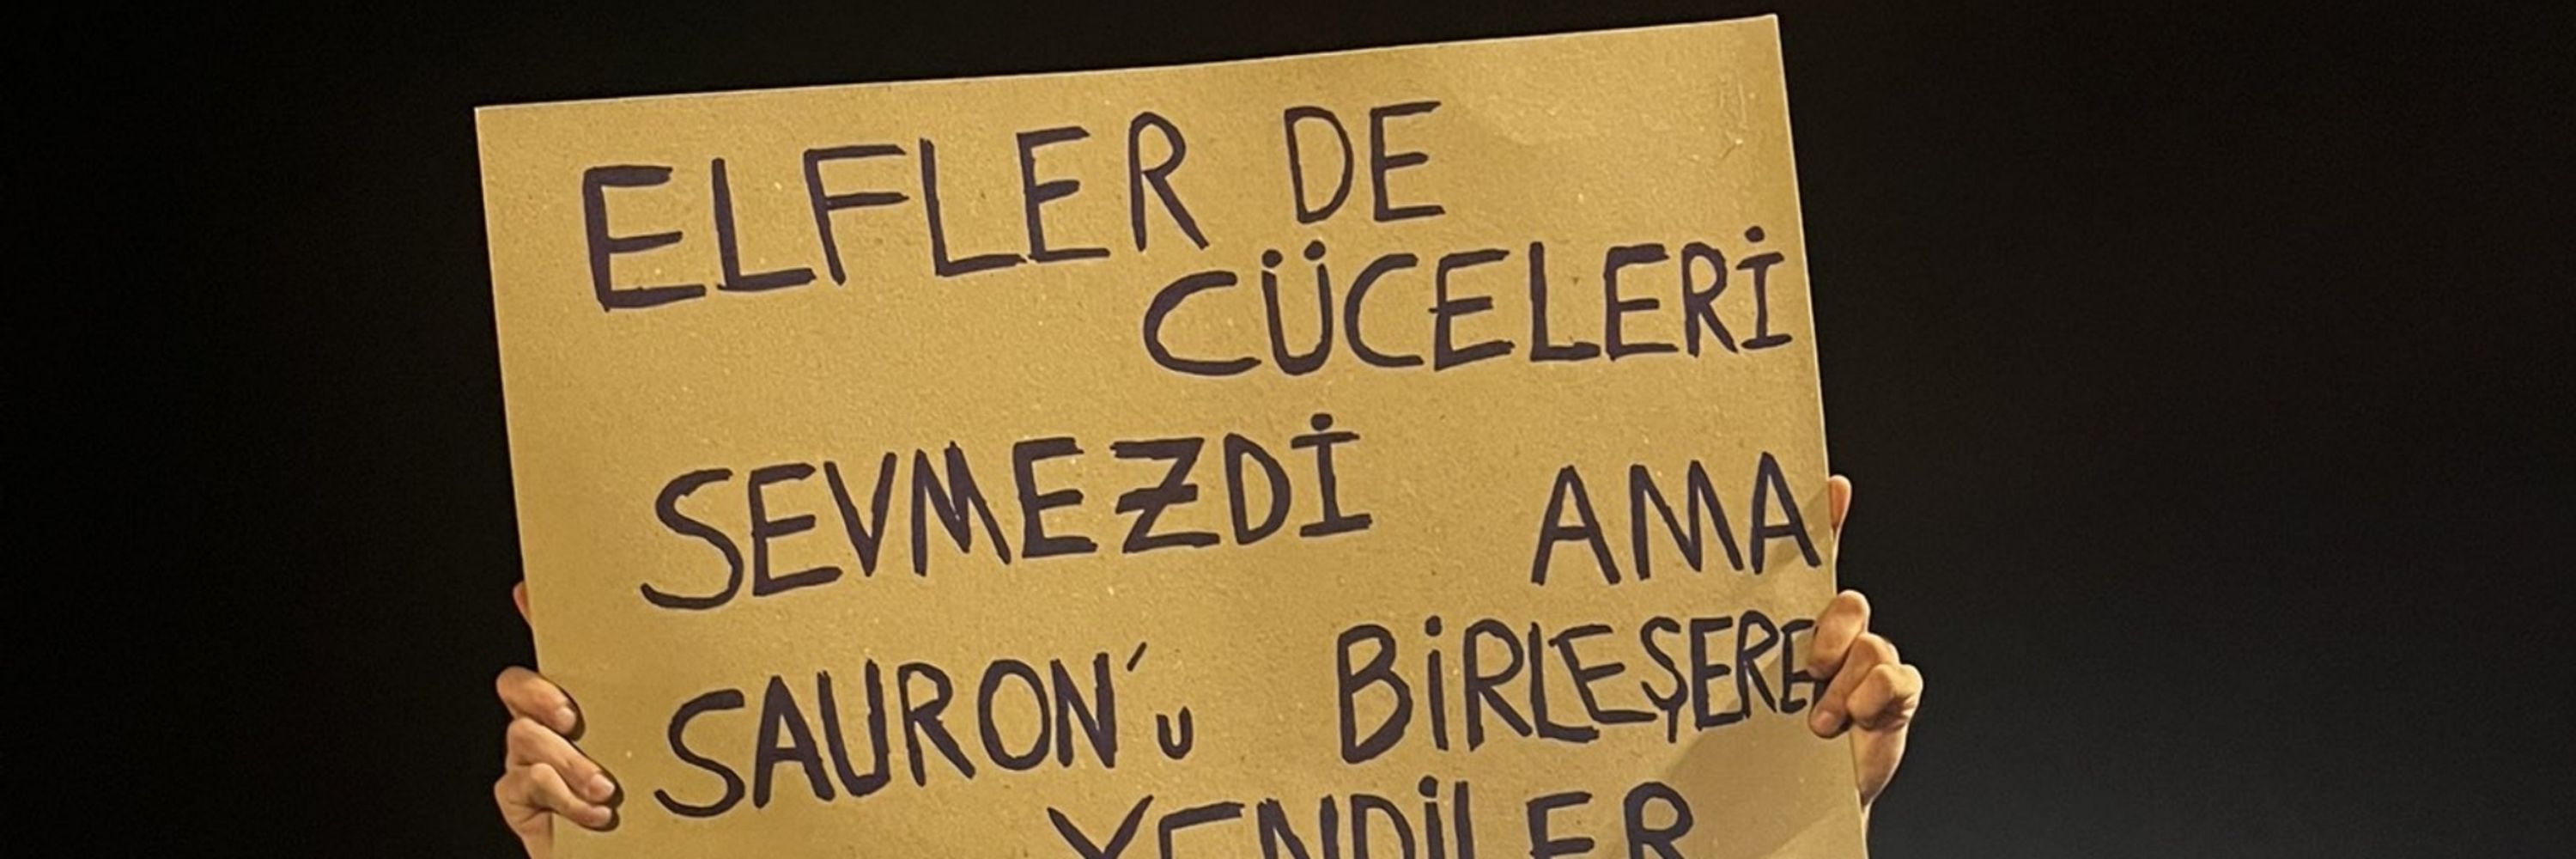 ELFLER DE
CÜCELERİ
SEVMEZDİ AMA
SAURON'u BİRLEŞERE
YENDİLER